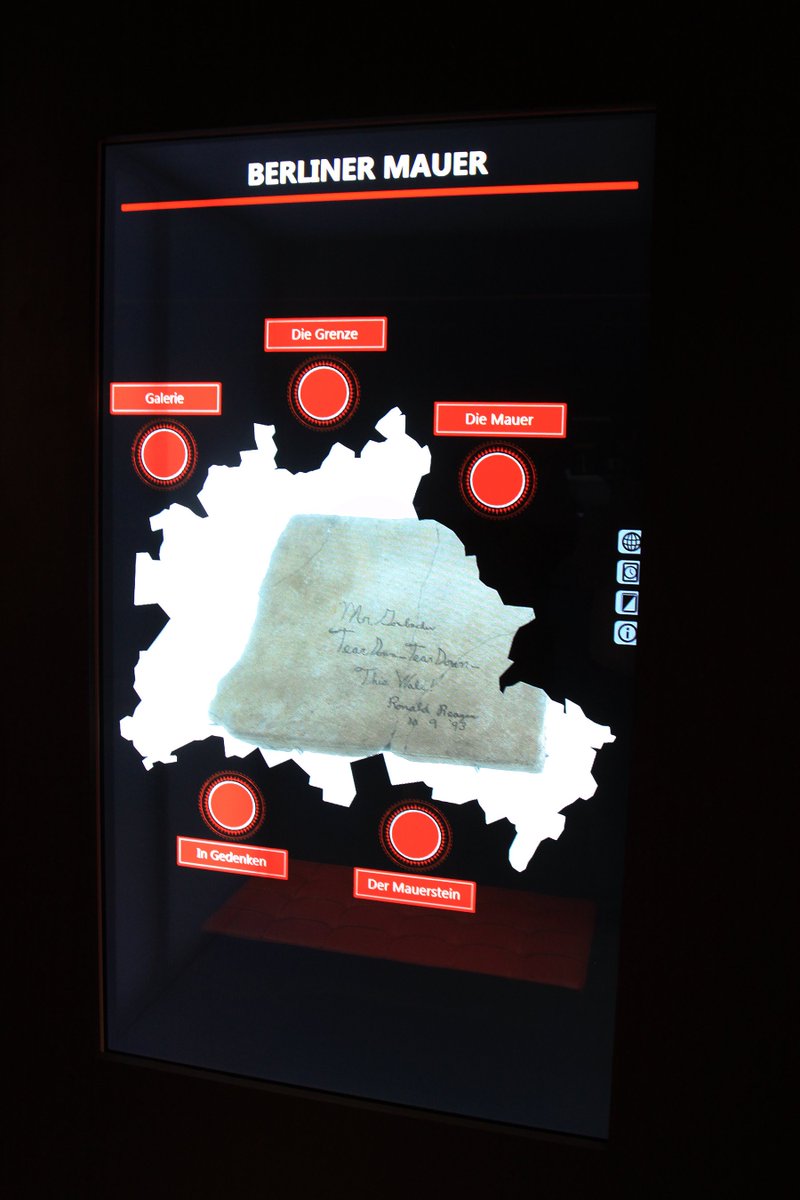 BERLINER MAUER
Die Grenze
Galerie
Die Mauer
Tear Down – Tear Down –
This Wall!
Ronald Reagan
9 93
In Gedenken
Der Mauerstein